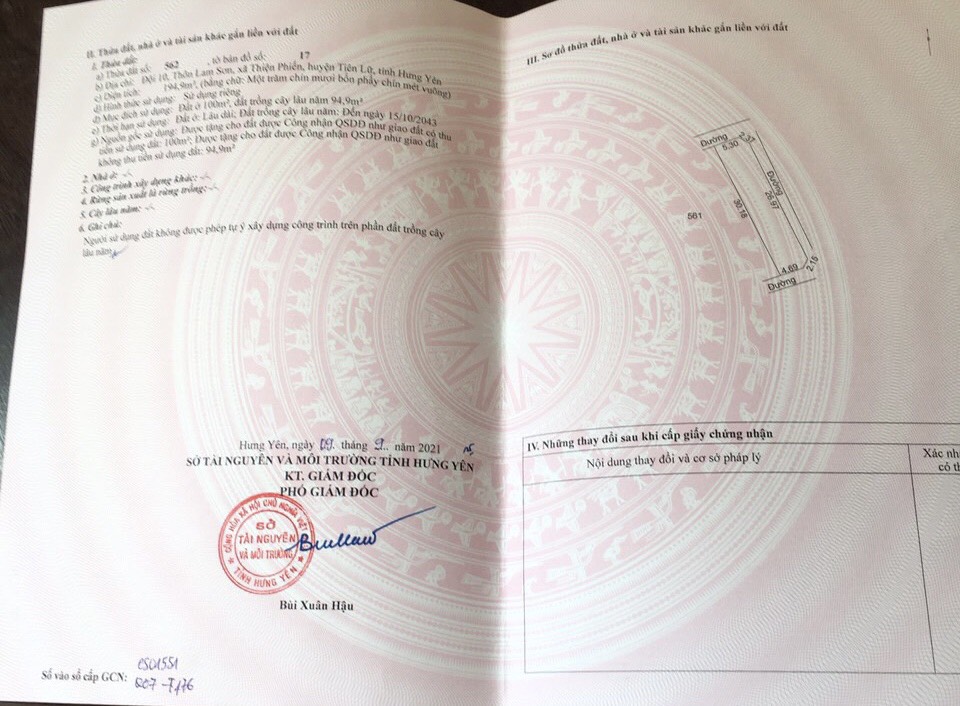 II. Thửa đất, nhà ở và tài sản khác gắn liền với đất
1. Thửa đất:
a) Thửa đất số: 562 , tờ bản đồ số: 17
b) Địa chỉ: Đội 10, Thôn Lam Sơn, xã Thiện Phiến, huyện Tiên Lữ, tỉnh Hưng Yên
c) Diện tích: 194.9m², (bằng chữ: Một trăm chín mươi bốn phẩy chín mét vuông)
d) Hình thức sử dụng: Sử dụng riêng
đ) Mục đích sử dụng: Đất ở 100m², đất trồng cây lâu năm 94,9m²
e) Thời hạn sử dụng: Đất ở: Lâu dài; Đất trồng cây lâu năm: Đến ngày 15/10/2043
g) Nguồn gốc sử dụng: Được tặng cho đất được Công nhận QSDĐ như giao đất có thu
tiền sử dụng đất: 100m²; Được tặng cho đất được Công nhận QSDĐ như giao đất
không thu tiền sử dụng đất: 94,9m²
2. Nhà ở: -/-
3. Công trình xây dựng khác: -/-
4. Rừng sản xuất là rừng trồng: -/-
5. Cây lâu năm: -/-
6. Ghi chú:
Người sử dụng đất không được phép tự ý xây dựng công trình trên phần đất trồng cây
lâu năm
Hưng Yên, ngày 09. tháng 9.. năm 2021
SỞ TÀI NGUYÊN VÀ MÔI TRƯỜNG TỈNH HƯNG YÊN
KT. GIÁM ĐỐC
PHÓ GIÁM ĐỐC
CỘNG HÒA XÃ HỘI CHỦ NGHĨA VIỆT
SỞ
TÀI NGUYÊN
VÀ MÔI TRƯỜNG
TỈNH HƯNG YÊN
Bùi Xuân Hậu
Số vào sổ cấp GCN:
III. Sơ đồ thửa đất, nhà ở và tài sản khác gắn liền với đất
Đường
5.30
Đường
26.97
30.18
561
4.69
2.15
Đường
IV. Những thay đổi sau khi cấp giấy chứng nhận
Nội dung thay đổi và cơ sở pháp lý
Xác nh
có th